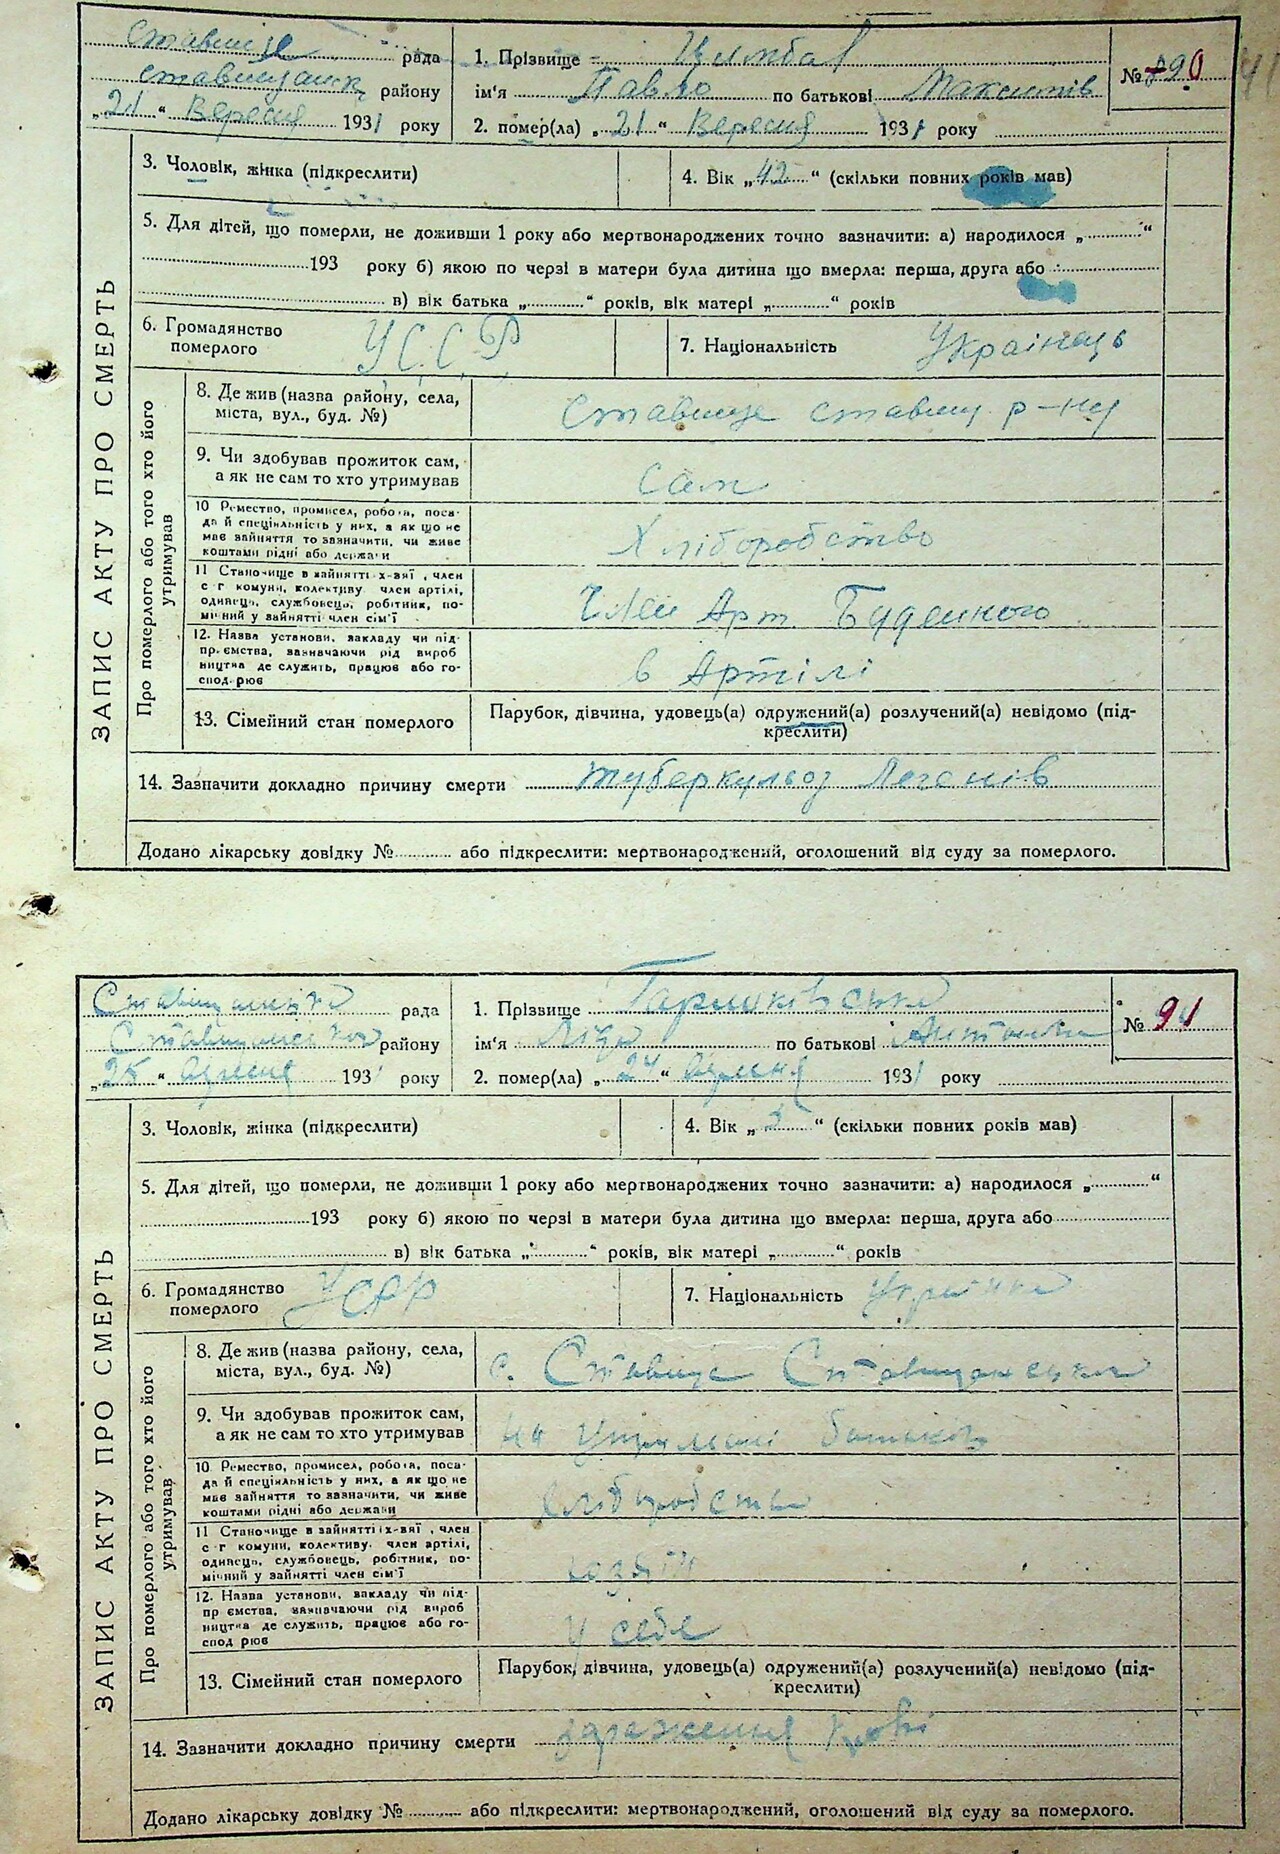 Ставище рада
Ставищанськ району
„21“ Вересня 1931 року
1. Прізвище Цимбал
ім'я Павло по батькові Максимів
№ 90
2. помер(ла) „21“ Вересня 1931 року
ЗАПИС АКТУ ПРО СМЕРТЬ
3. Чоловік, жінка (підкреслити)
4. Вік „42“ (скільки повних років мав)
5. Для дітей, що померли, не доживши 1 року або мертвонароджених точно зазначити: а) народилося „ “
193 року б) якою по черзі в матери була дитина що вмерла: перша, друга або
в) вік батька „ “ років, вік матері „ “ років
6. Громадянство
померлого
УССР
7. Національність Українець
Про померлого або того хто його
утримував
8. Де жив (назва району, села,
міста, вул., буд. №)
Ставище ставищ. р-ну
9. Чи здобував прожиток сам,
а як не сам то хто утримував
сам
10 Ремество, промисел, робота, поса-
да й спеціяльність у них, а як що не
має зайняття то зазначити, чи живе
коштами рідні або держави
Хліборобство
11 Становище в зайнятті х-вяї, член
с г комуни, колективу член артілі,
одинець, службовець, робітник, по-
мічний у зайнятті член сім'ї
Член Арт. Буденого
12. Назва установи, закладу чи під-
пр. ємства, зазначаючи рід вироб
ництва де служить, працює або го-
спод. рює
в Артілі
13. Сімейний стан померлого
Парубок, дівчина, удовець(а) одружений(а) розлучений(а) невідомо (під-
креслити)
14. Зазначити докладно причину смерти туберкульоз Легенів
Додано лікарську довідку № або підкреслити: мертвонароджений, оголошений від суду за померлого.
рада
району
„25“ вересня 1931 року
1. Прізвище
ім'я Ліда по батькові Антонівна
№ 91
2. помер(ла) „24“ вересня 1931 року
ЗАПИС АКТУ ПРО СМЕРТЬ
3. Чоловік, жінка (підкреслити)
4. Вік „ “ (скільки повних років мав)
5. Для дітей, що померли, не доживши 1 року або мертвонароджених точно зазначити: а) народилося „ “
193 року б) якою по черзі в матери була дитина що вмерла: перша, друга або
в) вік батька „ “ років, вік матері „ “ років
6. Громадянство
померлого
УСРР
7. Національність Українка
Про померлого або того хто його
утримував
8. Де жив (назва району, села,
міста, вул., буд. №)
с. Ставище
9. Чи здобував прожиток сам,
а як не сам то хто утримував
на утримані батьків
10. Ремество, промисел, робота, поса-
да й спеціяльність у них, а як що не
має зайняття то зазначити, чи живе
коштами рідні або держави
хліборобство
11 Становище в зайнятті х-вяї, член
с г комуни, колективу. член артілі,
одинець, службовець, робітник, по-
мічний у зайнятті член сім'ї
12. Назва установи, закладу чи під-
пр ємства, зазначаючи рід вироб
ництва де служить, працює або го-
спод рює
у себе
13. Сімейний стан померлого
Парубок, дівчина, удовець(а) одружений(а) розлучений(а) невідомо (під-
креслити)
14. Зазначити докладно причину смерти зараження крові
Додано лікарську довідку № або підкреслити: мертвонароджений, оголошений від суду за померлого.